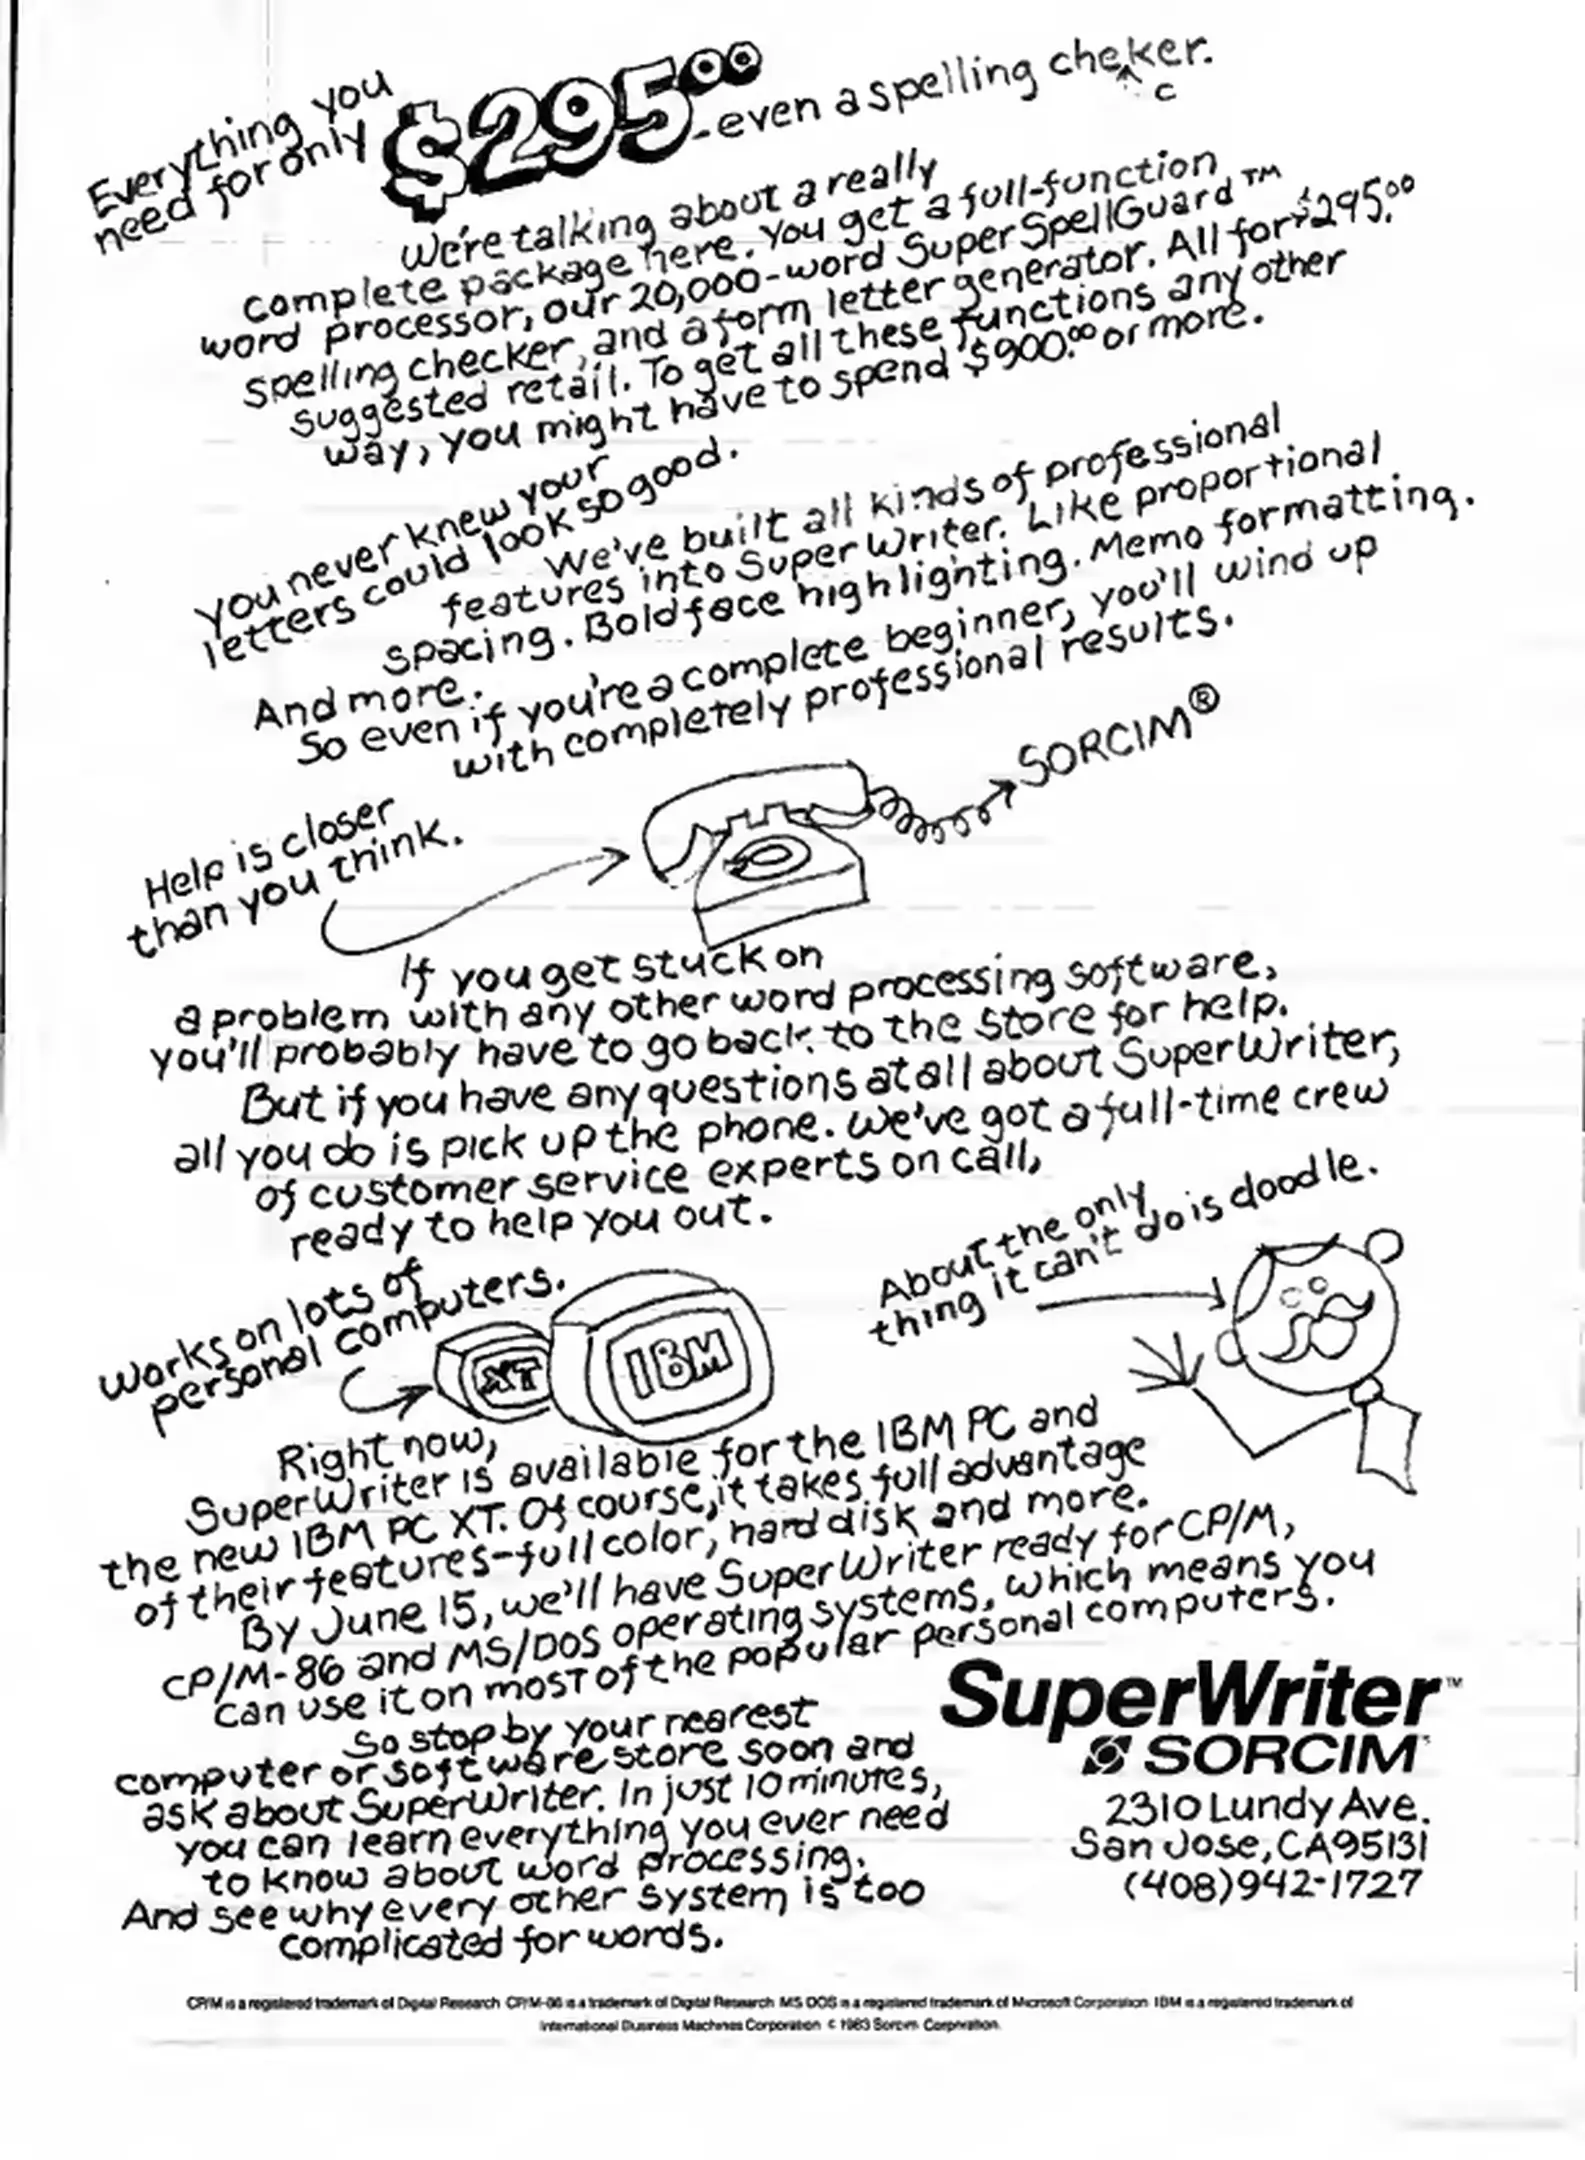 Everything you
need for only
$295.00
-even a spelling cheker.
c
We're talking about a really
complete package here. You get a full-function
word processor, our 20,000-word SuperSpellGuard™
spelling checker, and a form letter generator. All for $295.00
suggested retail. To get all these functions any other
way, you might have to spend $900.00 or more.
You never knew your
letters could look so good.
We've built all kinds of professional
features into SuperWriter. Like proportional
spacing. Boldface highlighting. Memo formatting.
And more.
So even if you're a complete beginner, you'll wind up
with completely professional results.
SORCIM®
Help is closer
than you think.
If you get stuck on
a problem with any other word processing software,
you'll probably have to go back to the store for help.
But if you have any questions at all about SuperWriter,
all you do is pick up the phone. We've got a full-time crew
of customer service experts on call,
ready to help you out.
About the only
thing it can't do is doodle.
Works on lots of
personal computers.
XT
IBM
Right now,
SuperWriter is available for the IBM PC and
the new IBM PC XT. Of course, it takes full advantage
of their features-full color, hard disk and more.
By June 15, we'll have SuperWriter ready for CP/M,
CP/M-86 and MS/DOS operating systems, which means you
can use it on most of the popular personal computers.
So stop by your nearest
computer or software store soon and
ask about SuperWriter. In just 10 minutes,
you can learn everything you ever need
to know about word processing.
And see why every other system is too
complicated for words.
SuperWriter™
SORCIM
2310 Lundy Ave.
San Jose, CA 95131
(408) 942-1727
CP/M is a registered trademark of Digital Research CP/M-86 is a trademark of Digital Research MS DOS is a registered trademark of Microsoft Corporation IBM is a registered trademark of
International Business Machines Corporation © 1983 Sorcim Corporation.